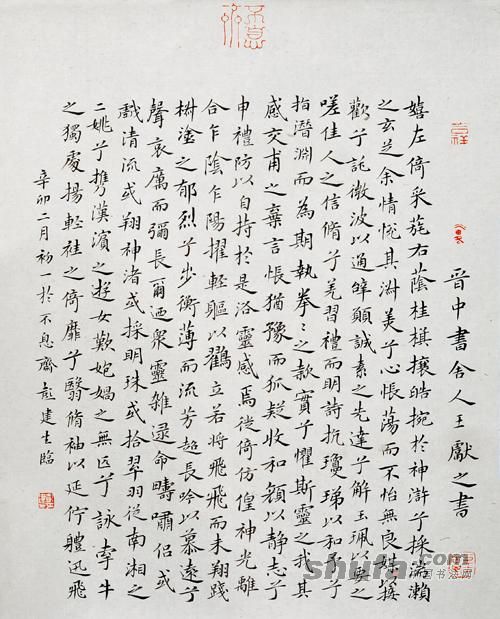 晉中書舍人王獻之書
嬉左倚采旄右蔭桂旗攘皓捥於神滸兮採湍瀨
之玄芝余情悅其淑美兮心悵蕩而不怡無良媒以接
歡兮託微波以通辭願誠素之先達兮解玉珮以要之
嗟佳人之信脩兮羌習禮而明詩抗瓊珶以和予兮
指潛淵而為期執拳〻之款實兮懼斯靈之我其
感交甫之棄言悵猶豫而狐疑收和顏以靜志兮
申禮防以自持於是洛靈感焉徙倚仿偟神光離
合乍陰乍陽擢輕軀以鸖立若將飛飛而未翔踐
椒塗之郁烈兮步衡薄而流芳超長吟以慕遠兮
聲哀厲而彌長爾迺眾靈雜遝命疇嘯侶或
戲清流或翔神渚或採明珠或拾翠羽從南湘之
二姚兮攜漢濱之遊女歎妑媧之無匹兮詠牽牛
之獨處揚輕袿之倚靡兮翳脩袖以延佇體迅飛
辛卯二月初一於不息齋彭建生臨
吉祥
shufa.com
中国书法网